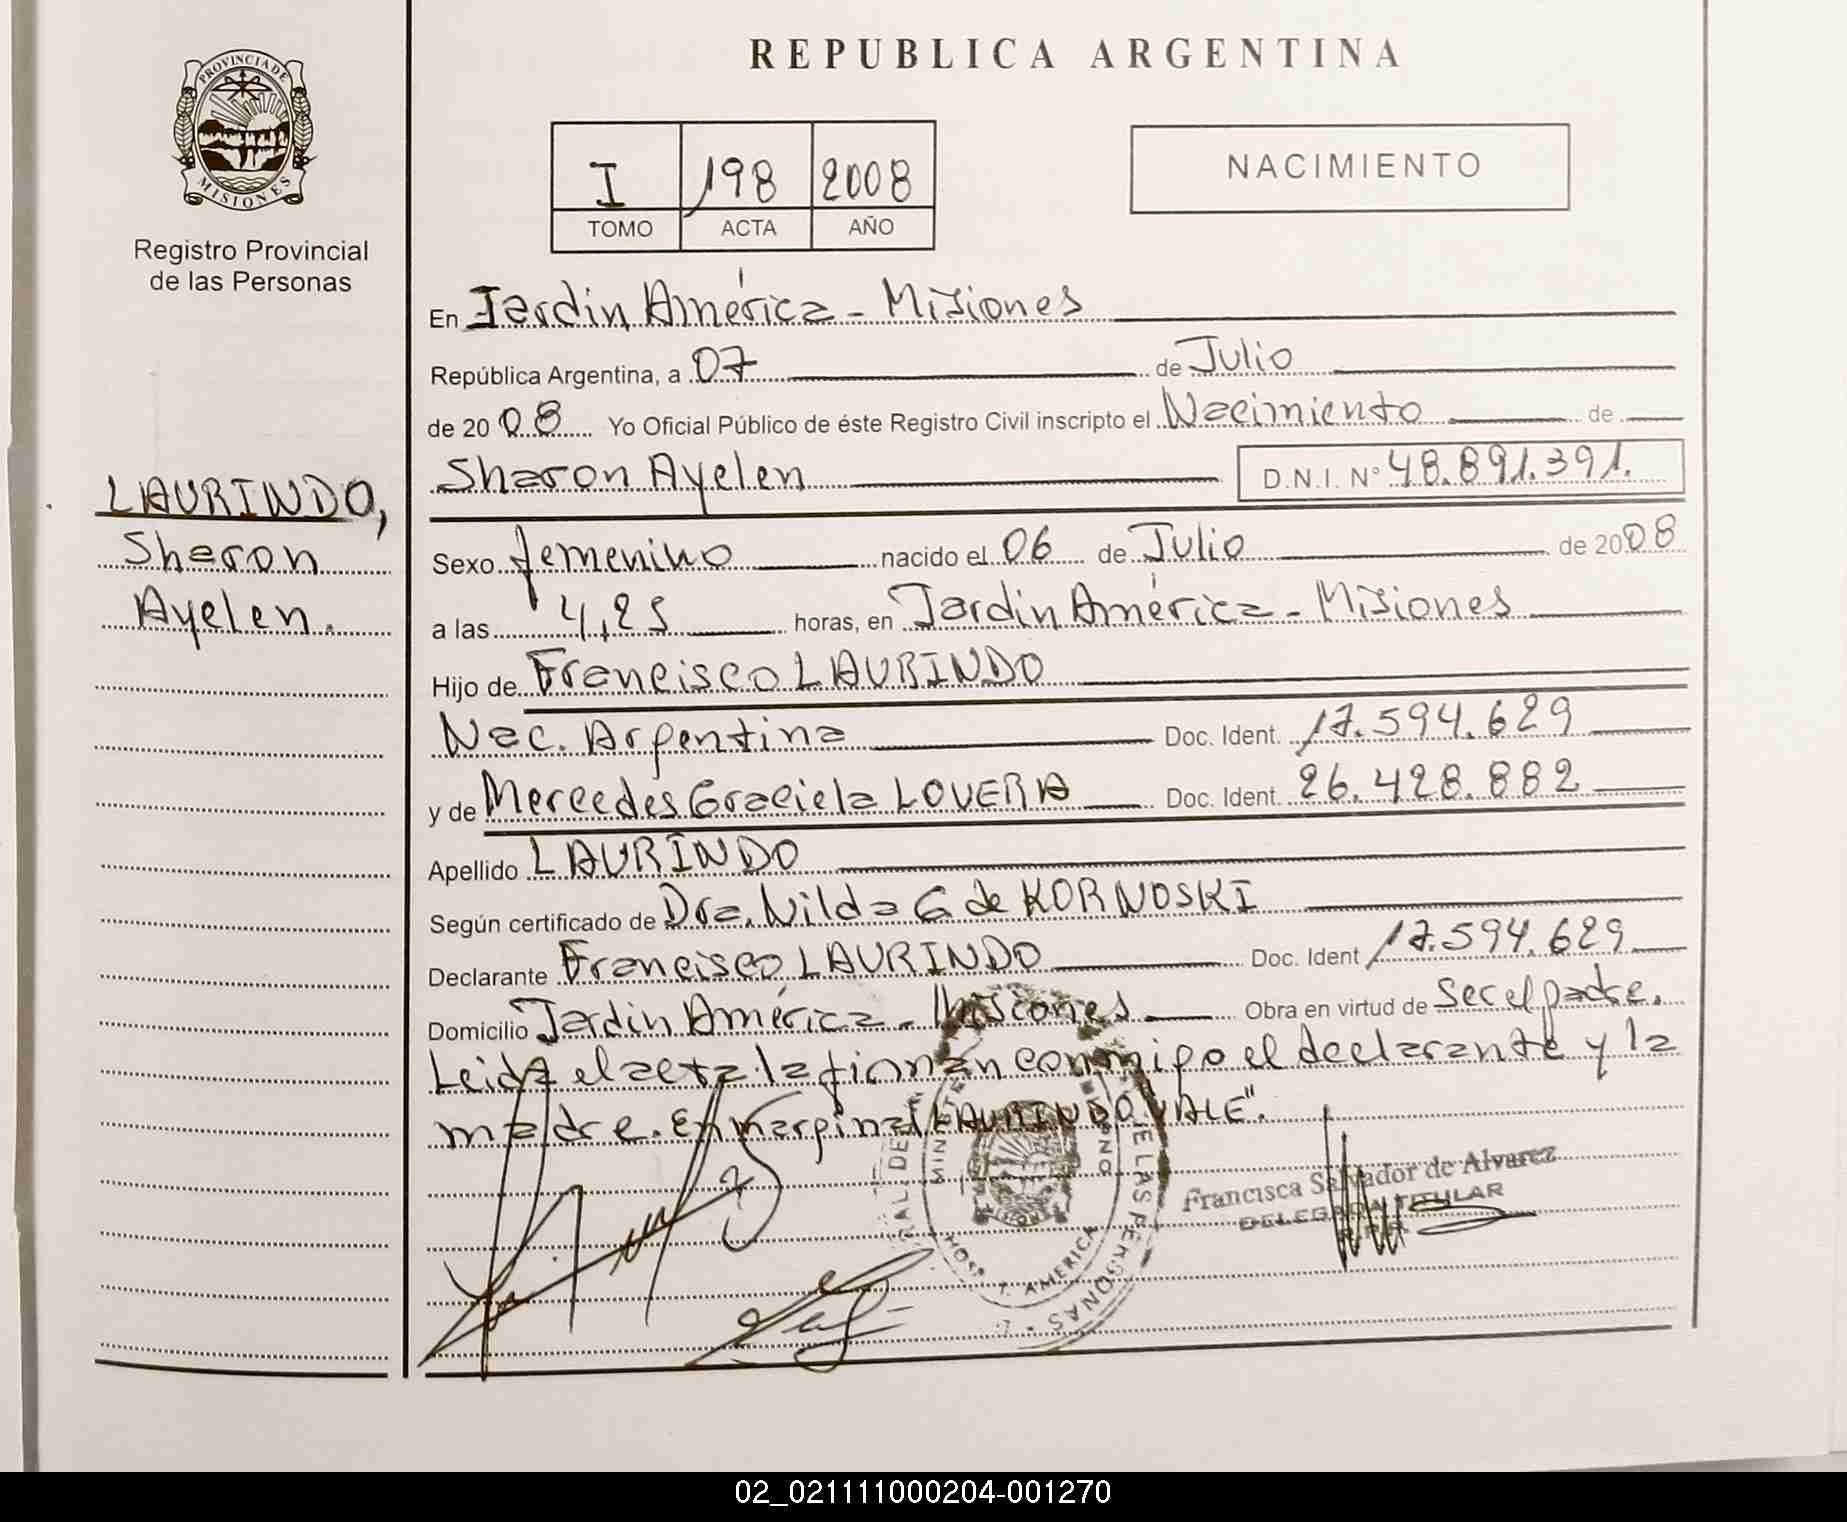 REPUBLICA ARGENTINA
PROVINCIA DE
MISIONES
Registro Provincial
de las Personas
I 198 2008
TOMO ACTA AÑO
NACIMIENTO
En Jardin América - Misiones
República Argentina, a 07 de Julio
de 2008 Yo Oficial Público de éste Registro Civil inscripto el Nacimiento de
Sharon Ayelen D.N.I. Nº 48.891.391.
LAURINDO,
Sharon
Ayelen.
Sexo femenino nacido el 06 de Julio de 2008
a las 4,25 horas, en Jardin América - Misiones
Hijo de Francisco LAURINDO
Nac. Argentina Doc. Ident. 17.594.629
y de Mercedes Graciela LOVERA Doc. Ident. 26.428.882
Apellido LAURINDO
Según certificado de Dra. Nilda G de KORNOSKI
Declarante Francisco LAURINDO Doc. Ident 17.594.629
Domicilio Jardin América - Misiones Obra en virtud de Ser el padre.
Leida el acta la firman conmigo el declarante y la
madre. En marginal LAURINDO VALE".
Francisca Salvador de Alvarez
DELEGADA TITULAR
R.P.P.
DE LAS PERSONAS
HOSP. J. AMERICA
02_021111000204-001270